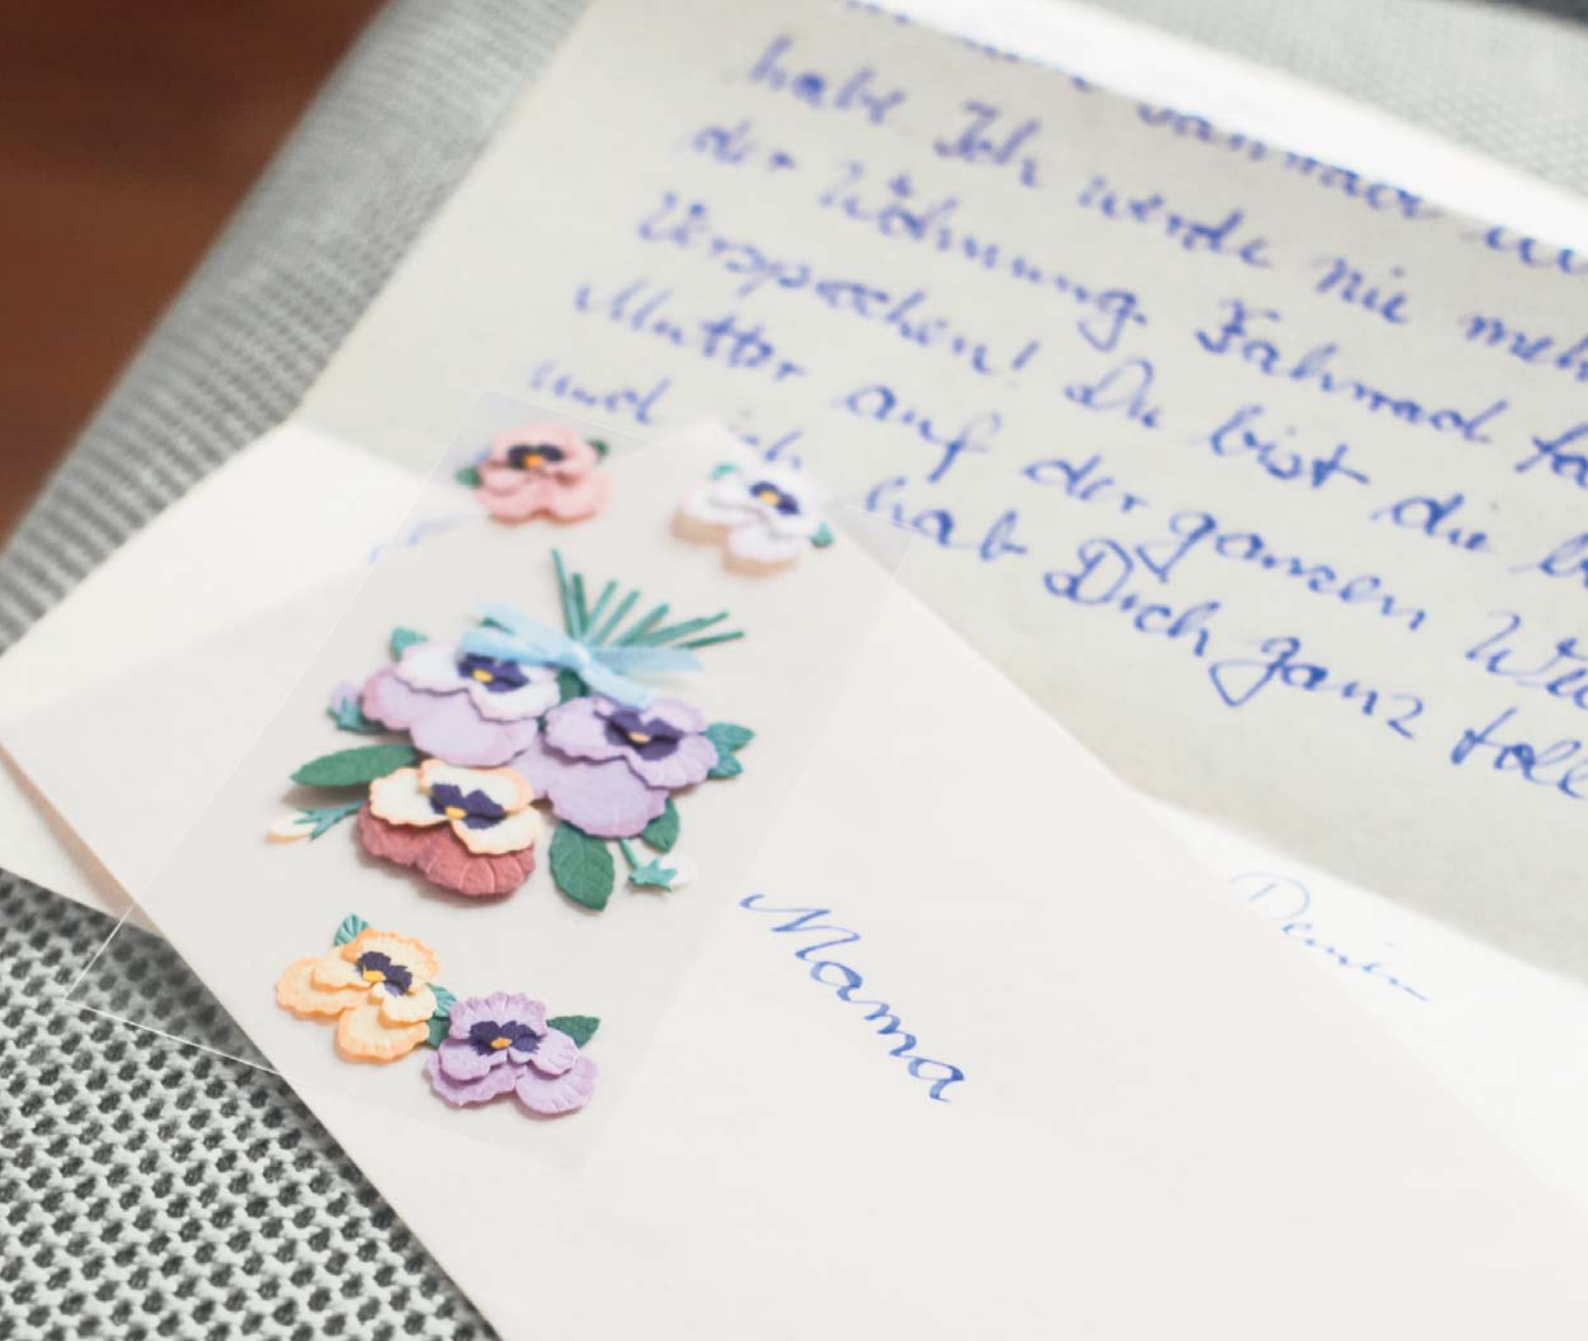 habe Ich werde nie meh
der Wohnung Fahrrad fa
Versprechen! Du bist die b
Mutter auf der ganzen We
und ich hab Dich ganz toll
Mama